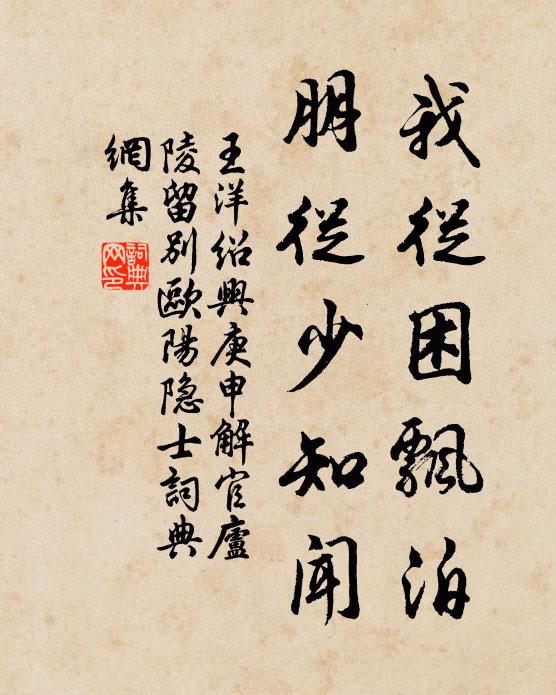 我從困飄泊
朋從少知聞
王洋紹興庚申解官廬
陵留別歐陽隐士詞典
網集
詞典網印